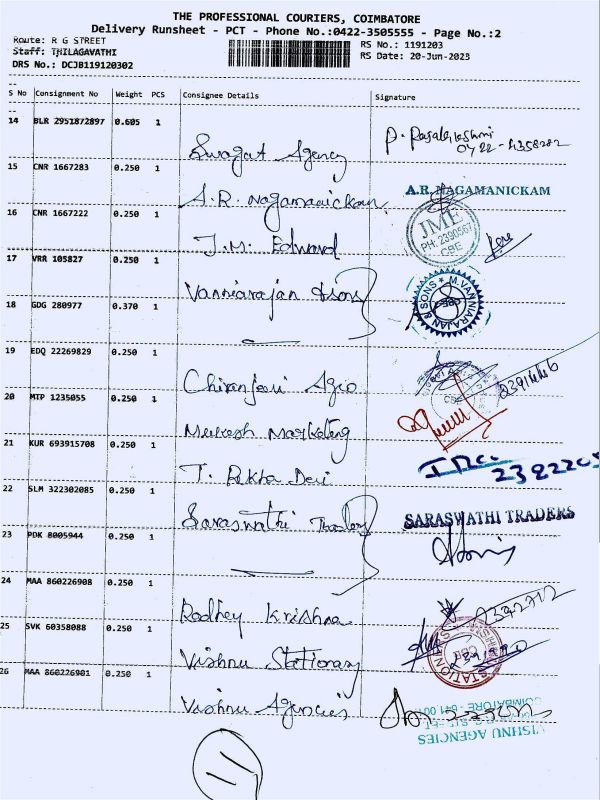 THE PROFESSIONAL COURIERS, COIMBATORE
Delivery Runsheet - PCT - Phone No.:0422-3505555 - Page No.:2
Route: R G STREET
RS No.: 1191203
Staff: THILAGAVATHI
RS Date: 20-Jun-2023
DRS No.: DCJB119120302
S No Consignment No Weight PCS Consignee Details Signature
14 BLR 2951872897 0.605 1 Swagat Agency
15 CNR 1667283 0.250 1 A.R. Nagamanickam A.R. NAGAMANICKAM
16 CNR 1667222 0.250 1 J.M. Edward JME PH: 2390567 CBE
17 VRR 105827 0.250 1 Vanniarajan & sons M.VANNIARAJAN & SONS
18 GDG 280977 0.370 1
19 EDQ 22269829 0.250 1 Chiranjeevi Agro
20 MTP 1235055 0.250 1 Marketing
21 KUR 693915708 0.250 1 T. Rekha Devi
22 SLM 322302085 0.250 1 Saraswathi Traders SARASWATHI TRADERS
23 PDK 8005944 0.250 1
24 MAA 860226908 0.250 1 Radhey Krishna
25 SVK 60358088 0.250 1 Vishnu Stationary
26 MAA 860226901 0.250 1 Vishnu Agencies
VISHNU AGENCIES
COIMBATORE - 641 001
11